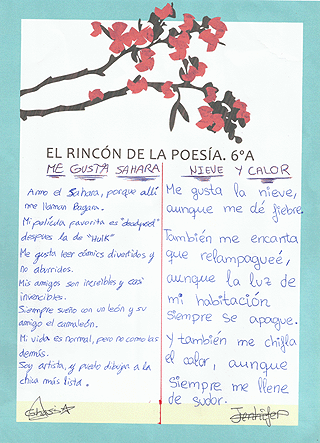 EL RINCÓN DE LA POESÍA. 6ºA
ME GUSTA SAHARA
Amo el Sahara, porque allí
me llaman Bagara.
Mi película favorita es "deadpool"
despues la de "Hulk"
Me gusta leer cómics divertidos y
no aburridos.
Mis amigos son increíbles y casi
invencibles.
Siempre sueño con un león y su
amigo el camaleón.
Mi vida es normal, pero no como las
demás.
Soy artista, y puedo dibujar a la
chica más lista.
NIEVE Y CALOR
Me gusta la nieve,
aunque me dé fiebre.
También me encanta
que relampagueé,
aunque la luz de
mi habitación
Siempre se apague.
Y también me chifla
el calor, aunque
Siempre me llene
de sudor.
Jennifer